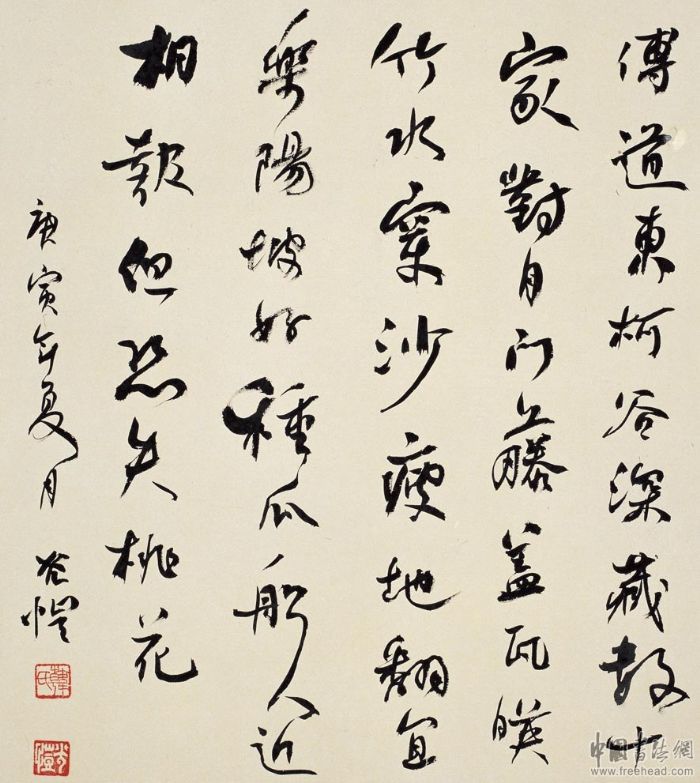 傳道東柯谷深藏數十
家對月门藤盖瓦暎
竹水穿沙瘦地翻宜
樂陽坡好種瓜船人近
相報但恐失桃花
庚寅年夏月 愷
中國書法網
www.freehead.com